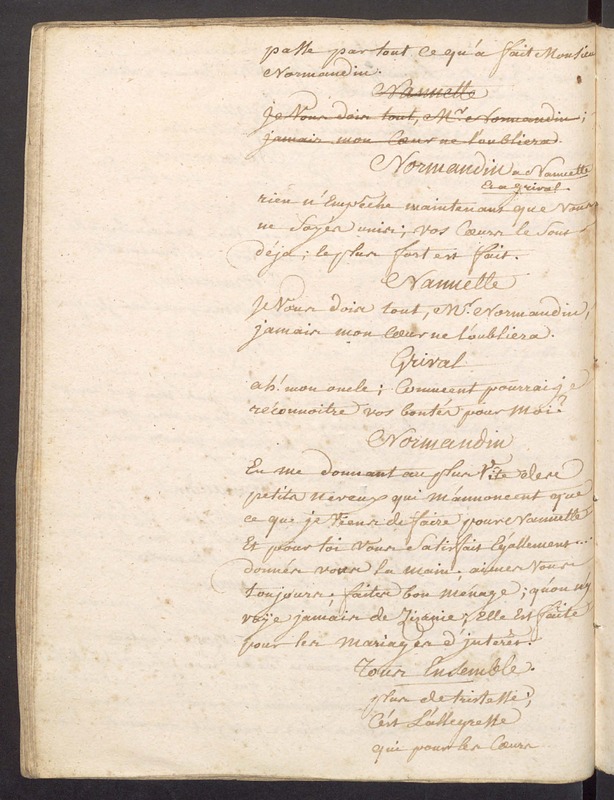 passe par tout ce qu'a fait Monsieur
Normandin.
Nannette
je vous dois tout, Mr. Normandin;
jamais mon Cœur ne l'oubliera.
Normandin a Nannette
Et a grival
rien n'Empêche maintenant que vous
ne Soyés unis; vos Cœurs le Sont
déja; le plus fort est fait.
Nannette
je vous dois tout, Mr. Normandin,
jamais mon Cœur ne l'oubliera.
Grival
ah! mon oncle; Comment pourrai je
reconnoitre vos bontés pour moi?
Normandin
En me donnant au plus Vite de
petits neveux qui m'annoncent que
ce que je viens de faire pour Nannette
Et pour toi vous Satisfait Egallement...
donnés vous la main; aimés vous
toujours, faites bon ménage; qu'on n'y
voye jamais de Zizanie; Elle Est faite
pour les mariages d'interêt.
Tous Ensemble.
plus de tristesse;
C'est L'allegresse
qui pour les Cœurs